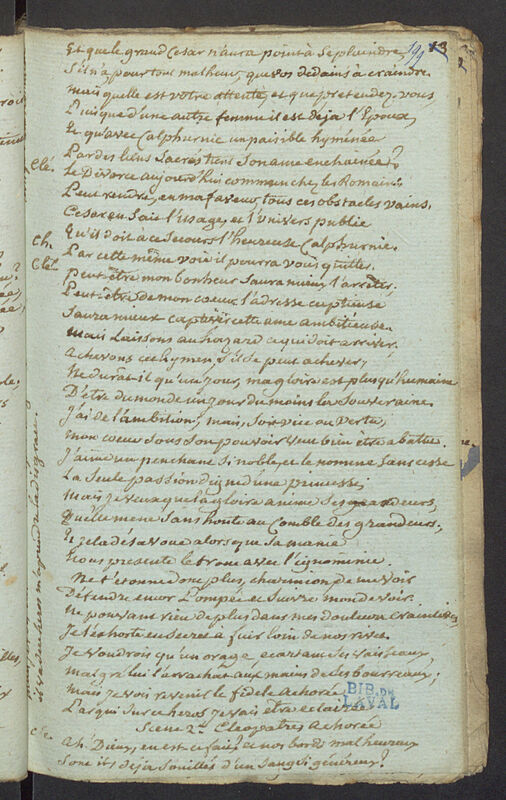 191 13
Et que le grand Cesar n'aura point à se plaindre,
S'il n'a pour tout malheur, que vos dedains à craindre.
mais quelle est votre attente, et que pretendez vous
Puisque d'une autre femme il est deja l'Epoux,
Et qu'avec Calphurnie un paisible hyménée
Par des liens sacrés tient son ame enchaineé?
Clé. Le Divorce aujourd'hui commun chez les Romains
Peut rendre, en ma faveur, tous ces obstacles vains.
Cesar en sait l'usage, et l'univers publie
Qu'il doit à ce secours l'heureuse Calphurnie.
Ch. Par cette même voie il pourra vous quitter.
Clé. Peut-être mon bonheur saura mieux l'arrêter.
Peut-être de mon coeur l'adresse captieuse
Saura mieux captiver cette ame ambitieuse.
Mais laissons au hazard ce qui doit arriver,
Achevons cet hymen, s'il se peut achever,
Ne durât-il qu'un jour, ma gloire est plus qu'humaine
D'être du monde un jour du moins la Souveraine.
J'ai de l'ambition; mais, soit vice ou vertu,
Mon coeur sous son pouvoir veut bien être abattu.
J'aime un penchant si noble, et le nomme sans cesse
La seule passion digne d'une princesse;
Mais je veux que la gloire anime ses grandeurs,
Qu'elle mene sans honte au comble des grandeurs,
Et je la desavoue alors que sa manie
Nous presente le trone avec l'ignominie.
Ne t'etonne donc plus, charmion, de me voir
Défendre encor Pompée et suivre mon devoir.
Ne pouvant rien de plus dans mes douleurs
Je l'exhorte en secret à fuir loin de nos rives.
Je voudrois qu'un orage, ecartant ses vaisseaux
malgré lui l'arrachat aux mains de ses bourreaux;
mais je vois revenir le fidele Achorée
Par qui sur ce heros je vais être eclaircie.
BIB. DE LAVAL
Scene 2e. Cleopatre, Achorée
Cle. Ah! Dieux, en est-ce fait, et nos bords malheureux
Sont ils deja souillés d'un sang si généreux?